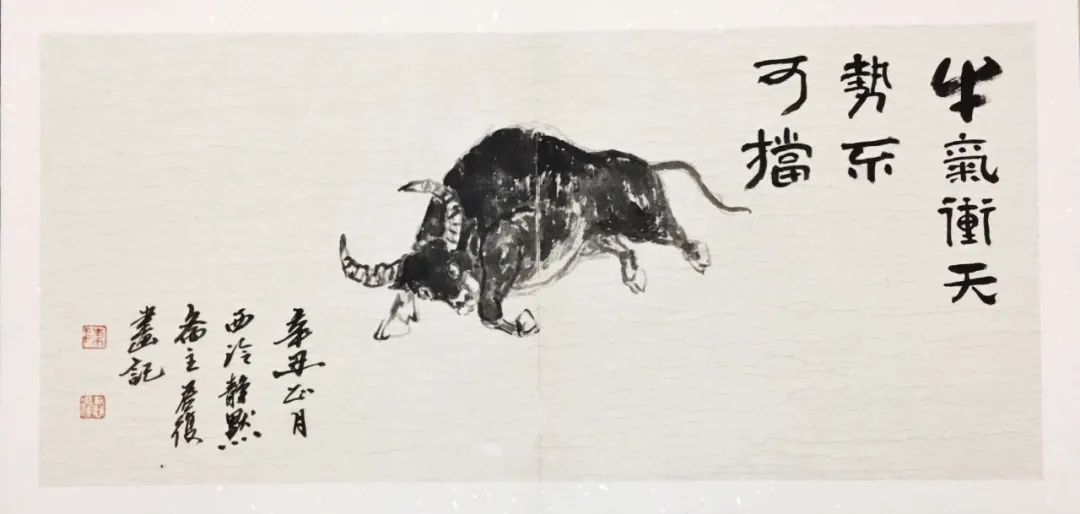 牛氣衝天
勢不
可擋
辛丑正月
西泠靜默
齋主君復
畫記